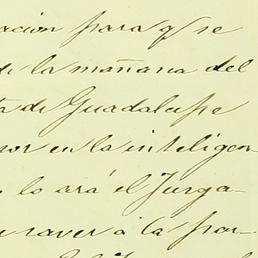 ación para q̃ se
de la mañana del
ta de Guadalupe
nor en la inteligen-
lo ará el Jurga-
raver á la par-